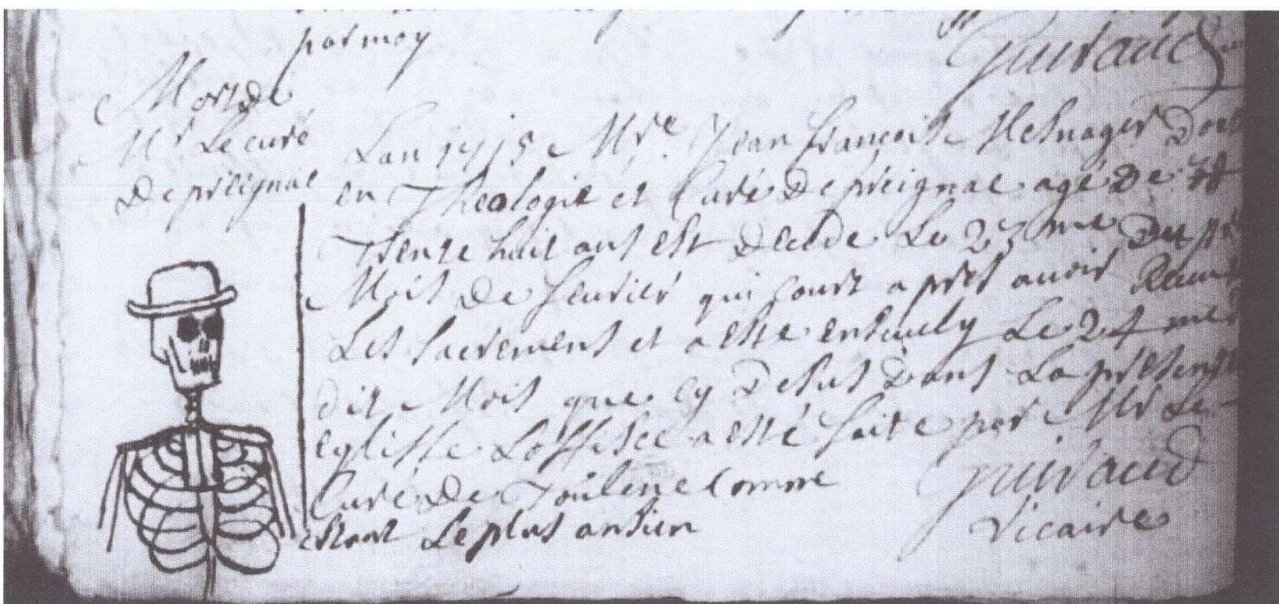 par moy
Guiraud
Mort de
Mr Le curé
De preignac
Lan 1715 Mre Jean françois Mesnager Doct
en Theologie et Curé De preignac agé De
Trente huit ans est decede Le 23 me Du
Mois De feurier qui court apres auoir Receu
Les sacrements et a esté enseuely Le 24 me
dit Mois que cy Desus Dans La presente
eglisse Loffisce a esté faite par Mr Le
Curé De Toulene Comme
estant Le plus ansien
Guiraud
Vicaire